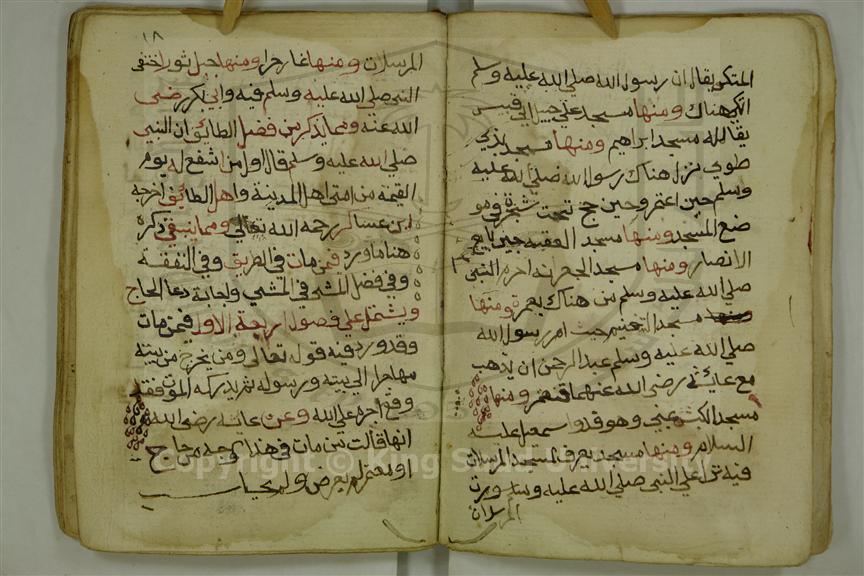 المتكي يقال ان رسول الله صلي الله عليه وسلم
اتكي هناك ومنها مسجد علي جبل ابي قبيس
يقال له مسجد ابراهيم ومنها مسجد بذي
طوي نزل هناك رسول الله صلي الله عليه
وسلم حين اعتمر وحين حج تحت شجرة في مو
ضع المسجد ومنها مسجد العقبة حين بايع
الانصار ومنها مسجد الجعرانه احرم النبي
صلي الله عليه وسلم من هناك بعمرة ومنها
ومنها مسجد التنعيم حيث امر رسول الله
صلي الله عليه وسلم عبد الرحمن ان يذهب
مع عائشه رضي الله عنهما فتعتمر ومنها
مسجد الكبش بمني وهو فدو اسمعيل عليه
السلام ومنها مسجد يعرف بمسجد المرسلات
فيه نزل علي النبي صلي الله عليه وسلم سورت
المرسلات
١٨
المرسلات ومنها غار حرا ومنها جبل ثور اختفي
النبي صلي الله عليه وسلم فيه وابي بكر رضي
الله عنه ومما يذكر من فضل الطائف ان النبي
صلي الله عليه وسلم قال اول من اشفع له يوم
القيمة من امتي اهل المدينة واهل الطائف اخرجه
ابن عساكر رحمه الله تعالي ومما ينبغي ذكره
هنا ما ورد فيمن مات في الطريق وفي النفقة
وفي فضل المشي في المشي واجابة دعا الحاج
ويشتمل علي فصول اربعة الاول فيمن مات
وقد ورد فيه قوله تعالي ومن يخرج من بيته
مهاجرا الي بيته ورسوله ثم يدركه الموت فقد
وقع اجره علي الله وعن عائشه رضي الله
انها قالت من مات في هذا الوجه من حاج
او معتمر لم يعرض ولم يحاسب
Copyright © King Saud University